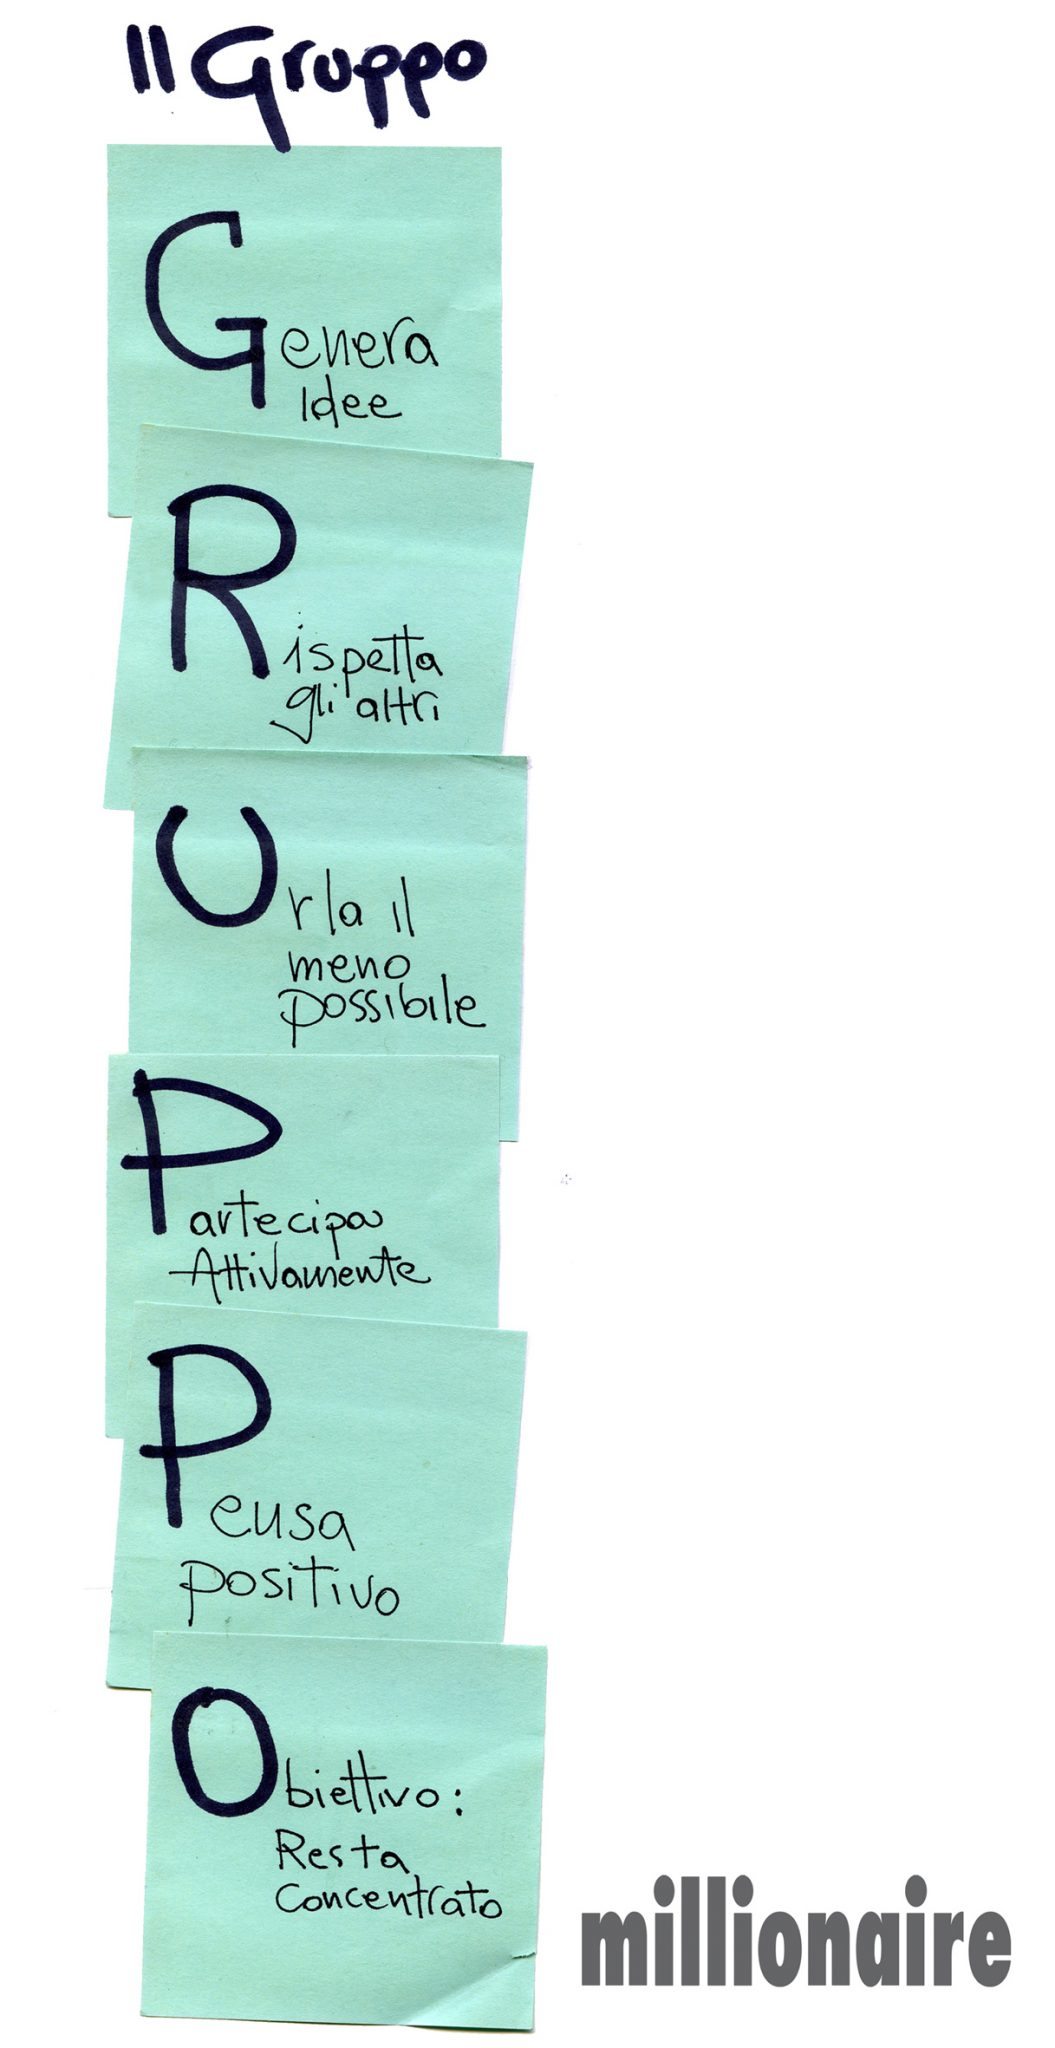 Il Gruppo
Genera
Idee
Rispetta
gli altri
Urla il
meno
possibile
Partecipa
Attivamente
Pensa
positivo
Obiettivo:
Resta
Concentrato
millionaire